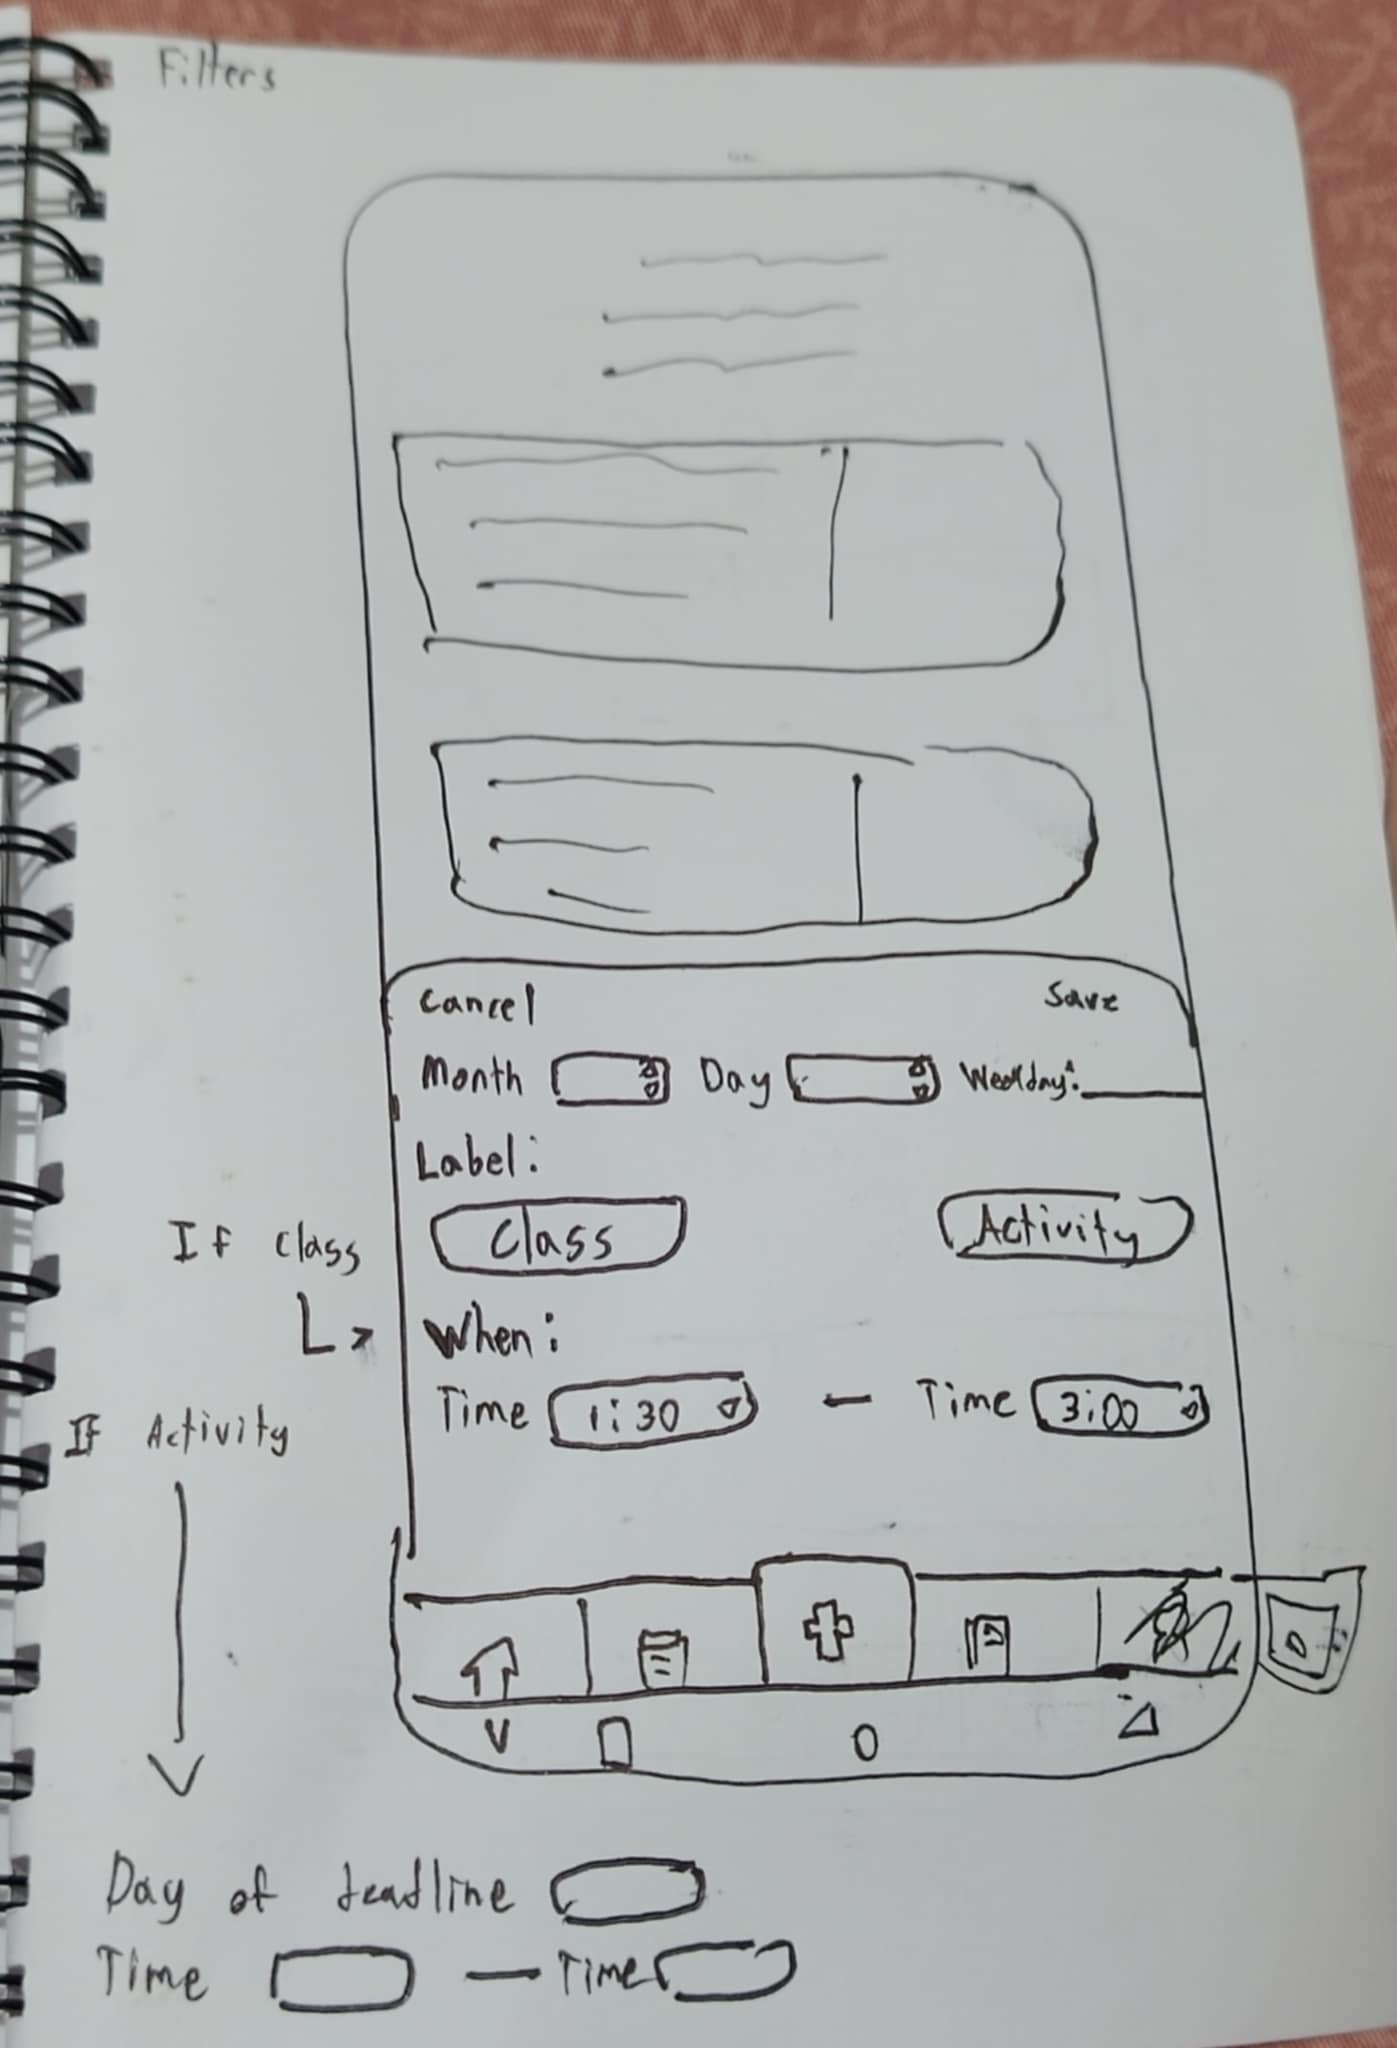 Filters
Cancel Save
Month Day Weekday:
Label:
If class Class Activity
When:
Time 1:30 — Time 3:00
If Activity
Day of deadline
Time — Time